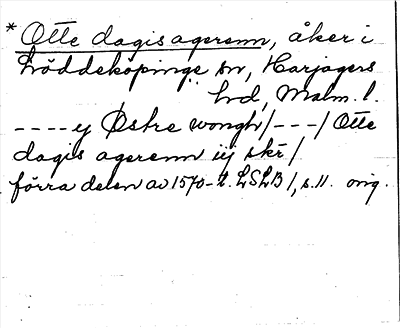 * Otte dagis agerenn, åker i
Löddeköpinge sn, Harjagers
hd, Malm. l.
----ij Østre wongh/---/Otte
dagis agerenn iij skr/
förra delen av 1570-t. LSLB/, s.11. orig.